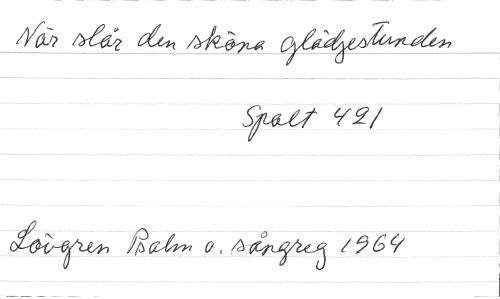 När slår den sköna glädjestunden
Spalt 421
Lövgren Psalm o. sångreg 1964